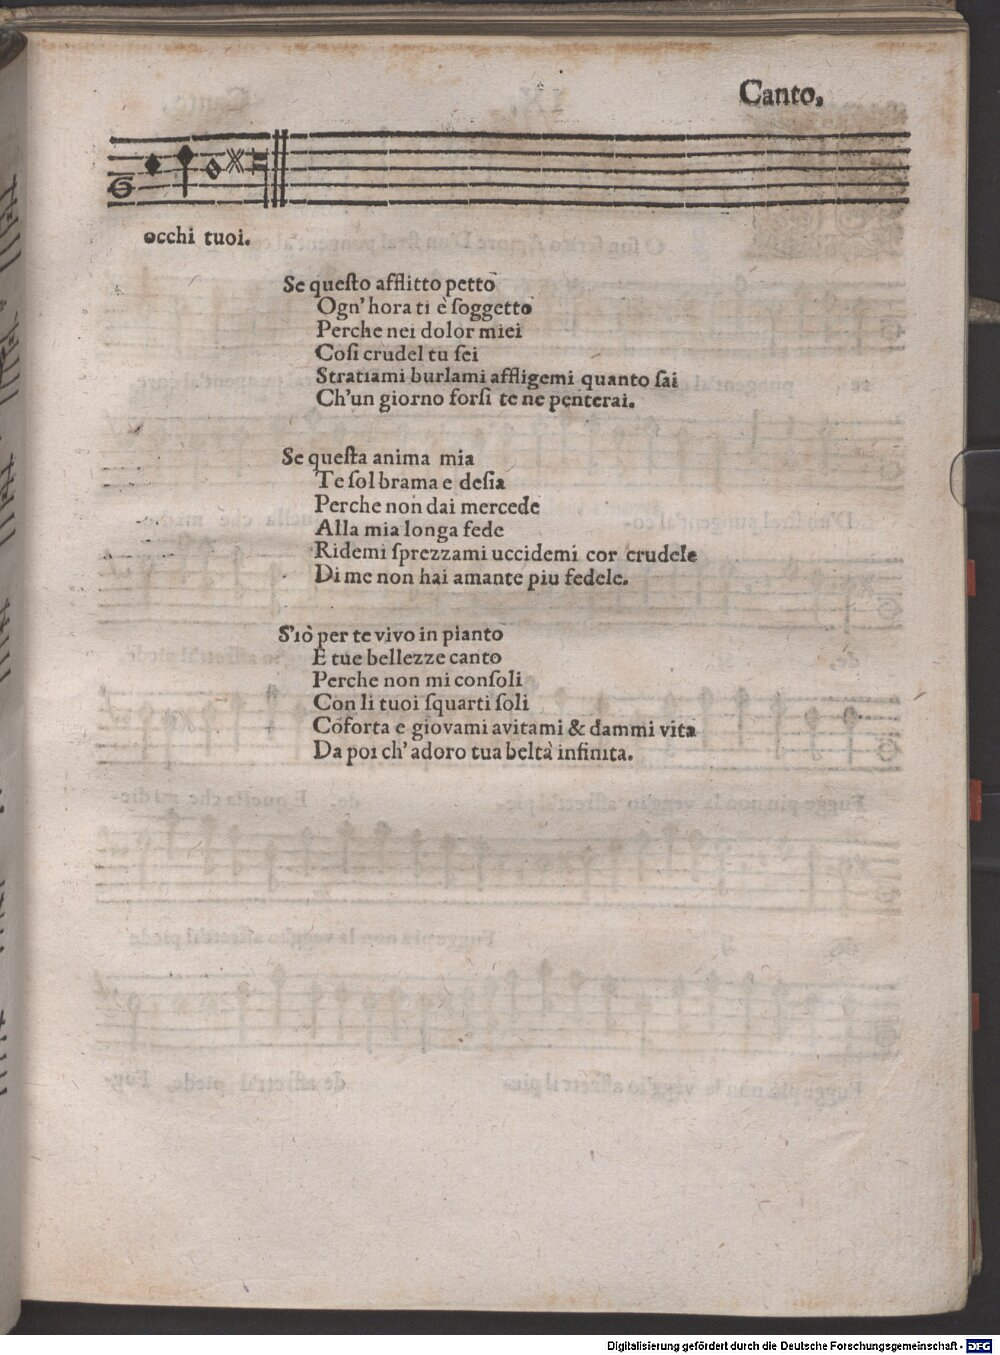 Canto,
occhi tuoi.
Se questo afflitto petto
Ogn' hora ti è soggetto
Perche nei dolor miei
Cosi crudel tu sei
Stratiami burlami affligemi quanto sai
Ch'un giorno forsi te ne penterai.
Se questa anima mia
Te sol brama e desia
Perche non dai mercede
Alla mia longa fede
Ridemi sprezzami uccidemi cor crudele
Di me non hai amante piu fedele.
S'iò per te vivo in pianto
E tue bellezze canto
Perche non mi consoli
Con li tuoi squarti soli
Cõforta e giovami avitami & dammi vita
Da poi ch' adoro tua beltà infinita.
Digitalisierung gefördert durch die Deutsche Forschungsgemeinschaft - DFG